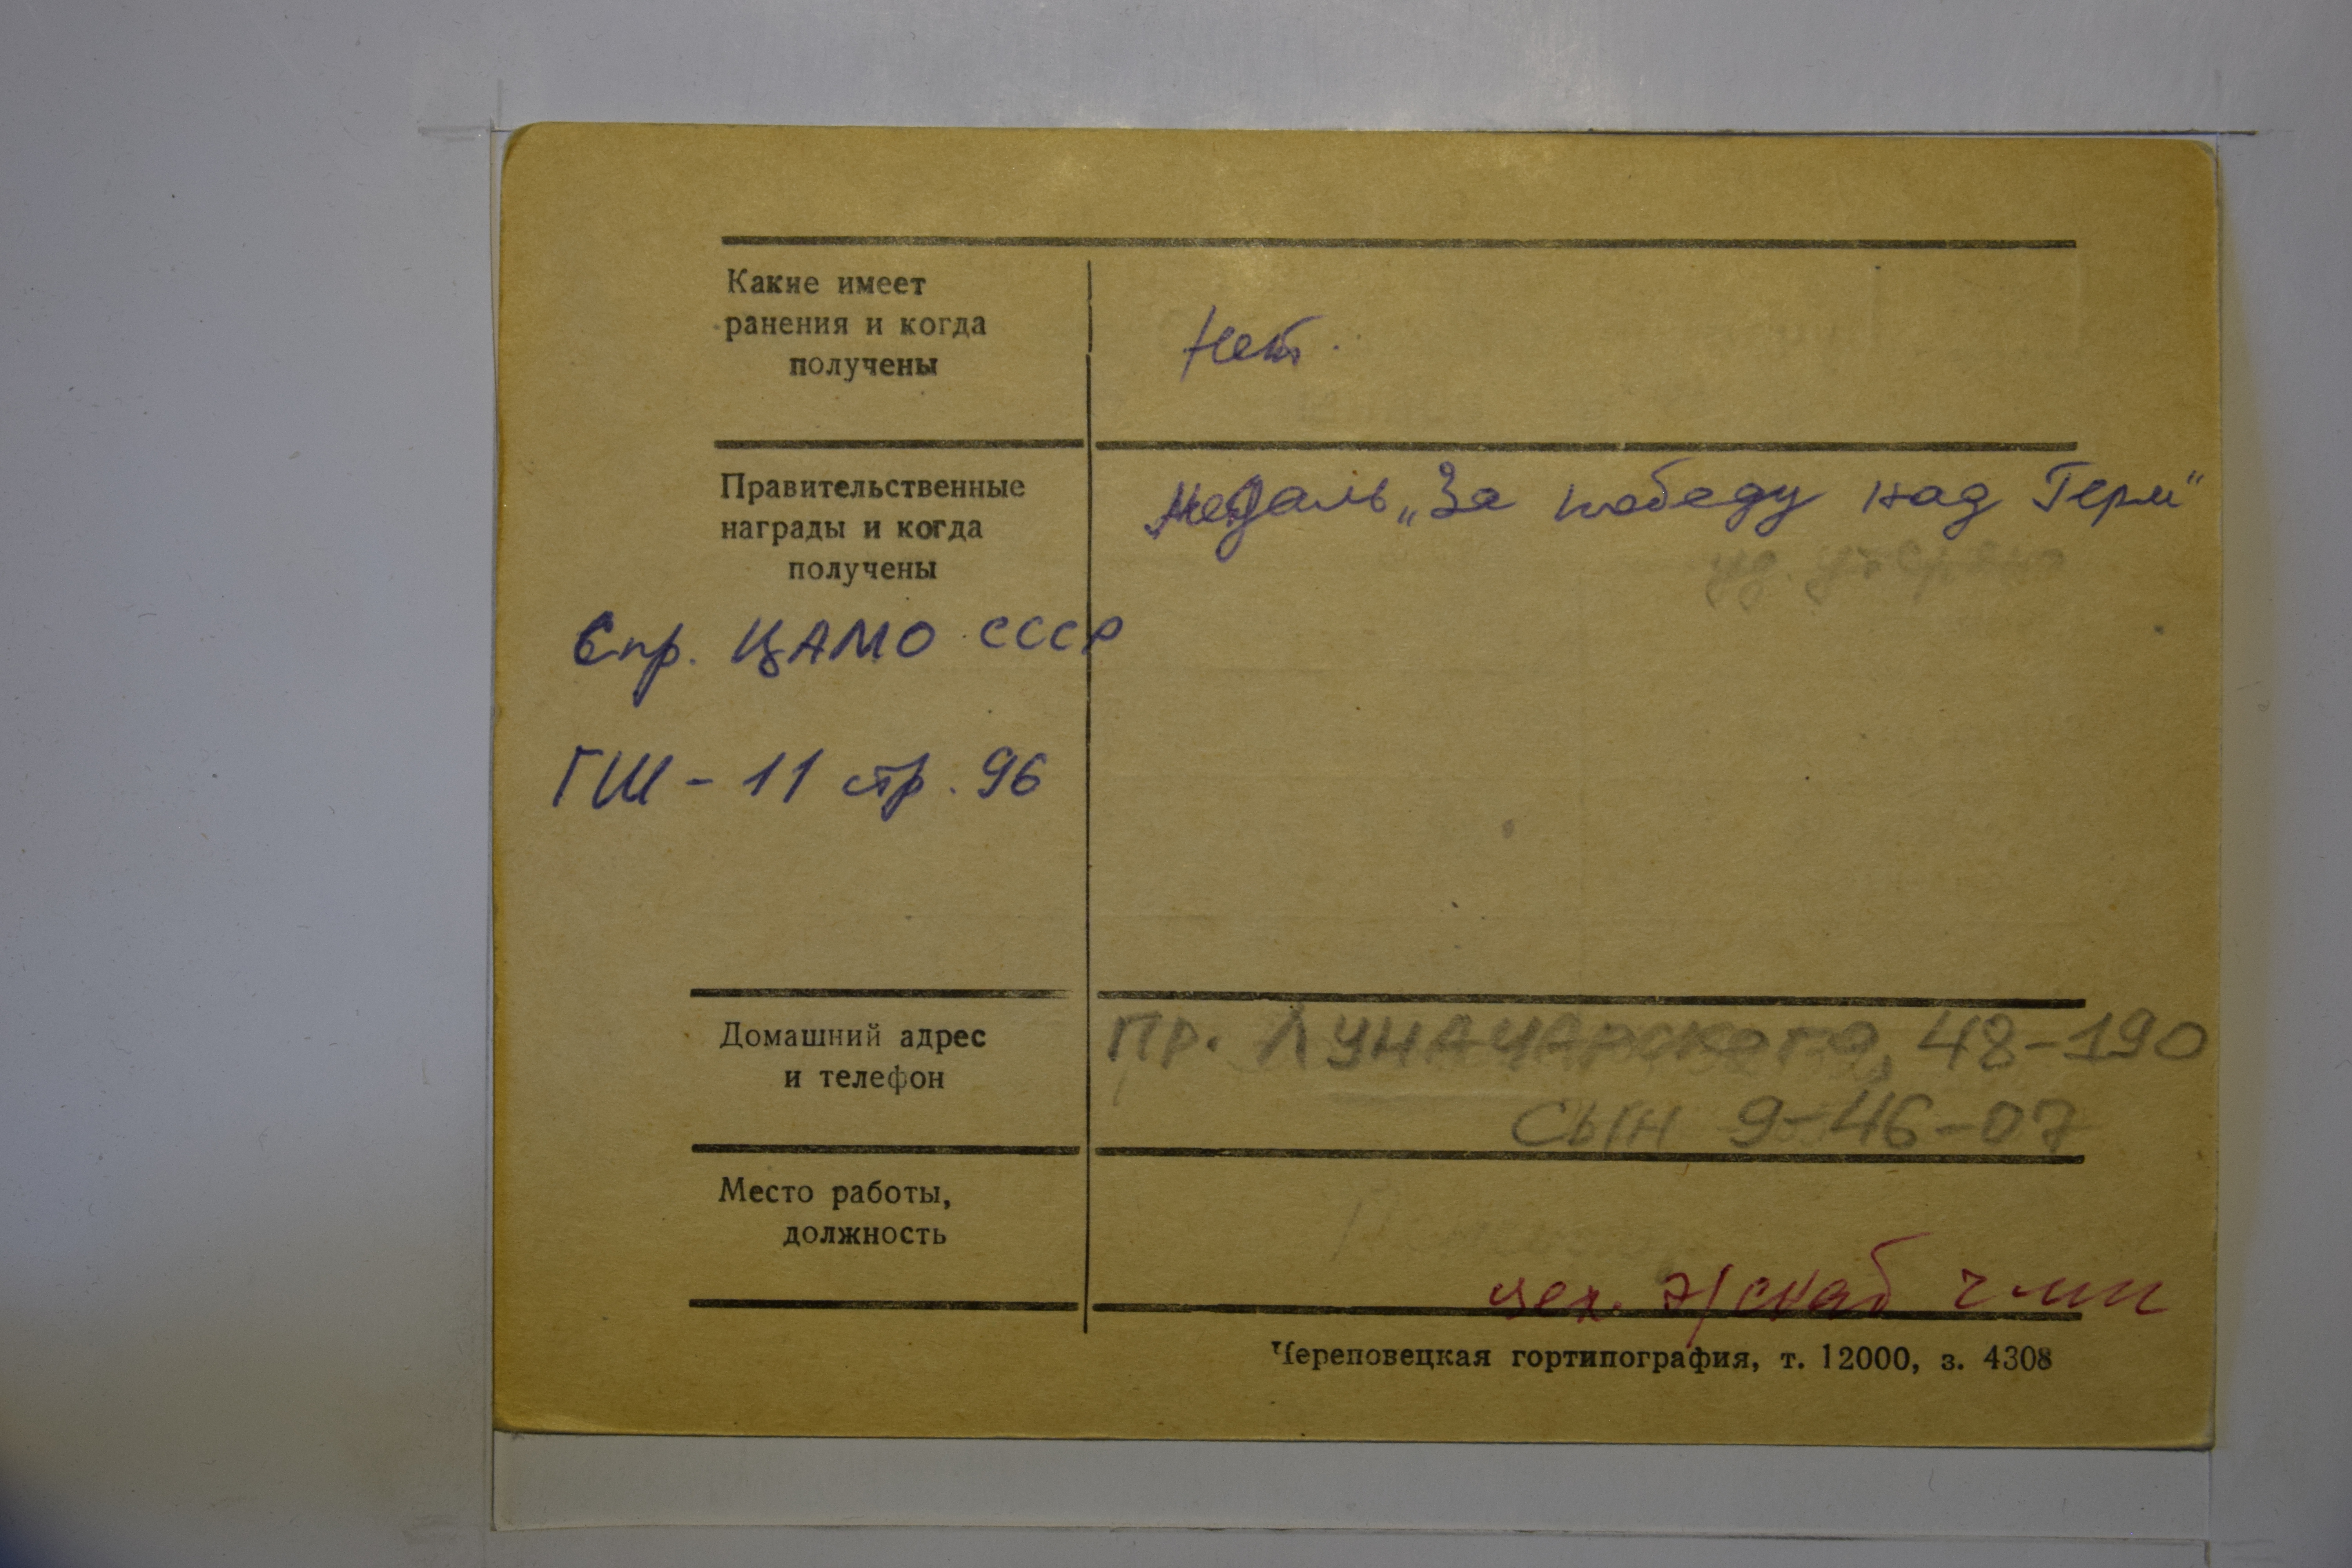 Какие имеет
ранения и когда
получены
Нет.
Правительственные
награды и когда
получены
Медаль „За победу над Герм"
Спр. ЦАМО СССР
ГШ - 11 стр. 96
Домашний адрес
и телефон
Пр. Луначарского, 48-190
сын 9-46-07
Место работы,
должность
цех. э/снаб чмк
Череповецкая гортипография, т. 12000, з. 4308